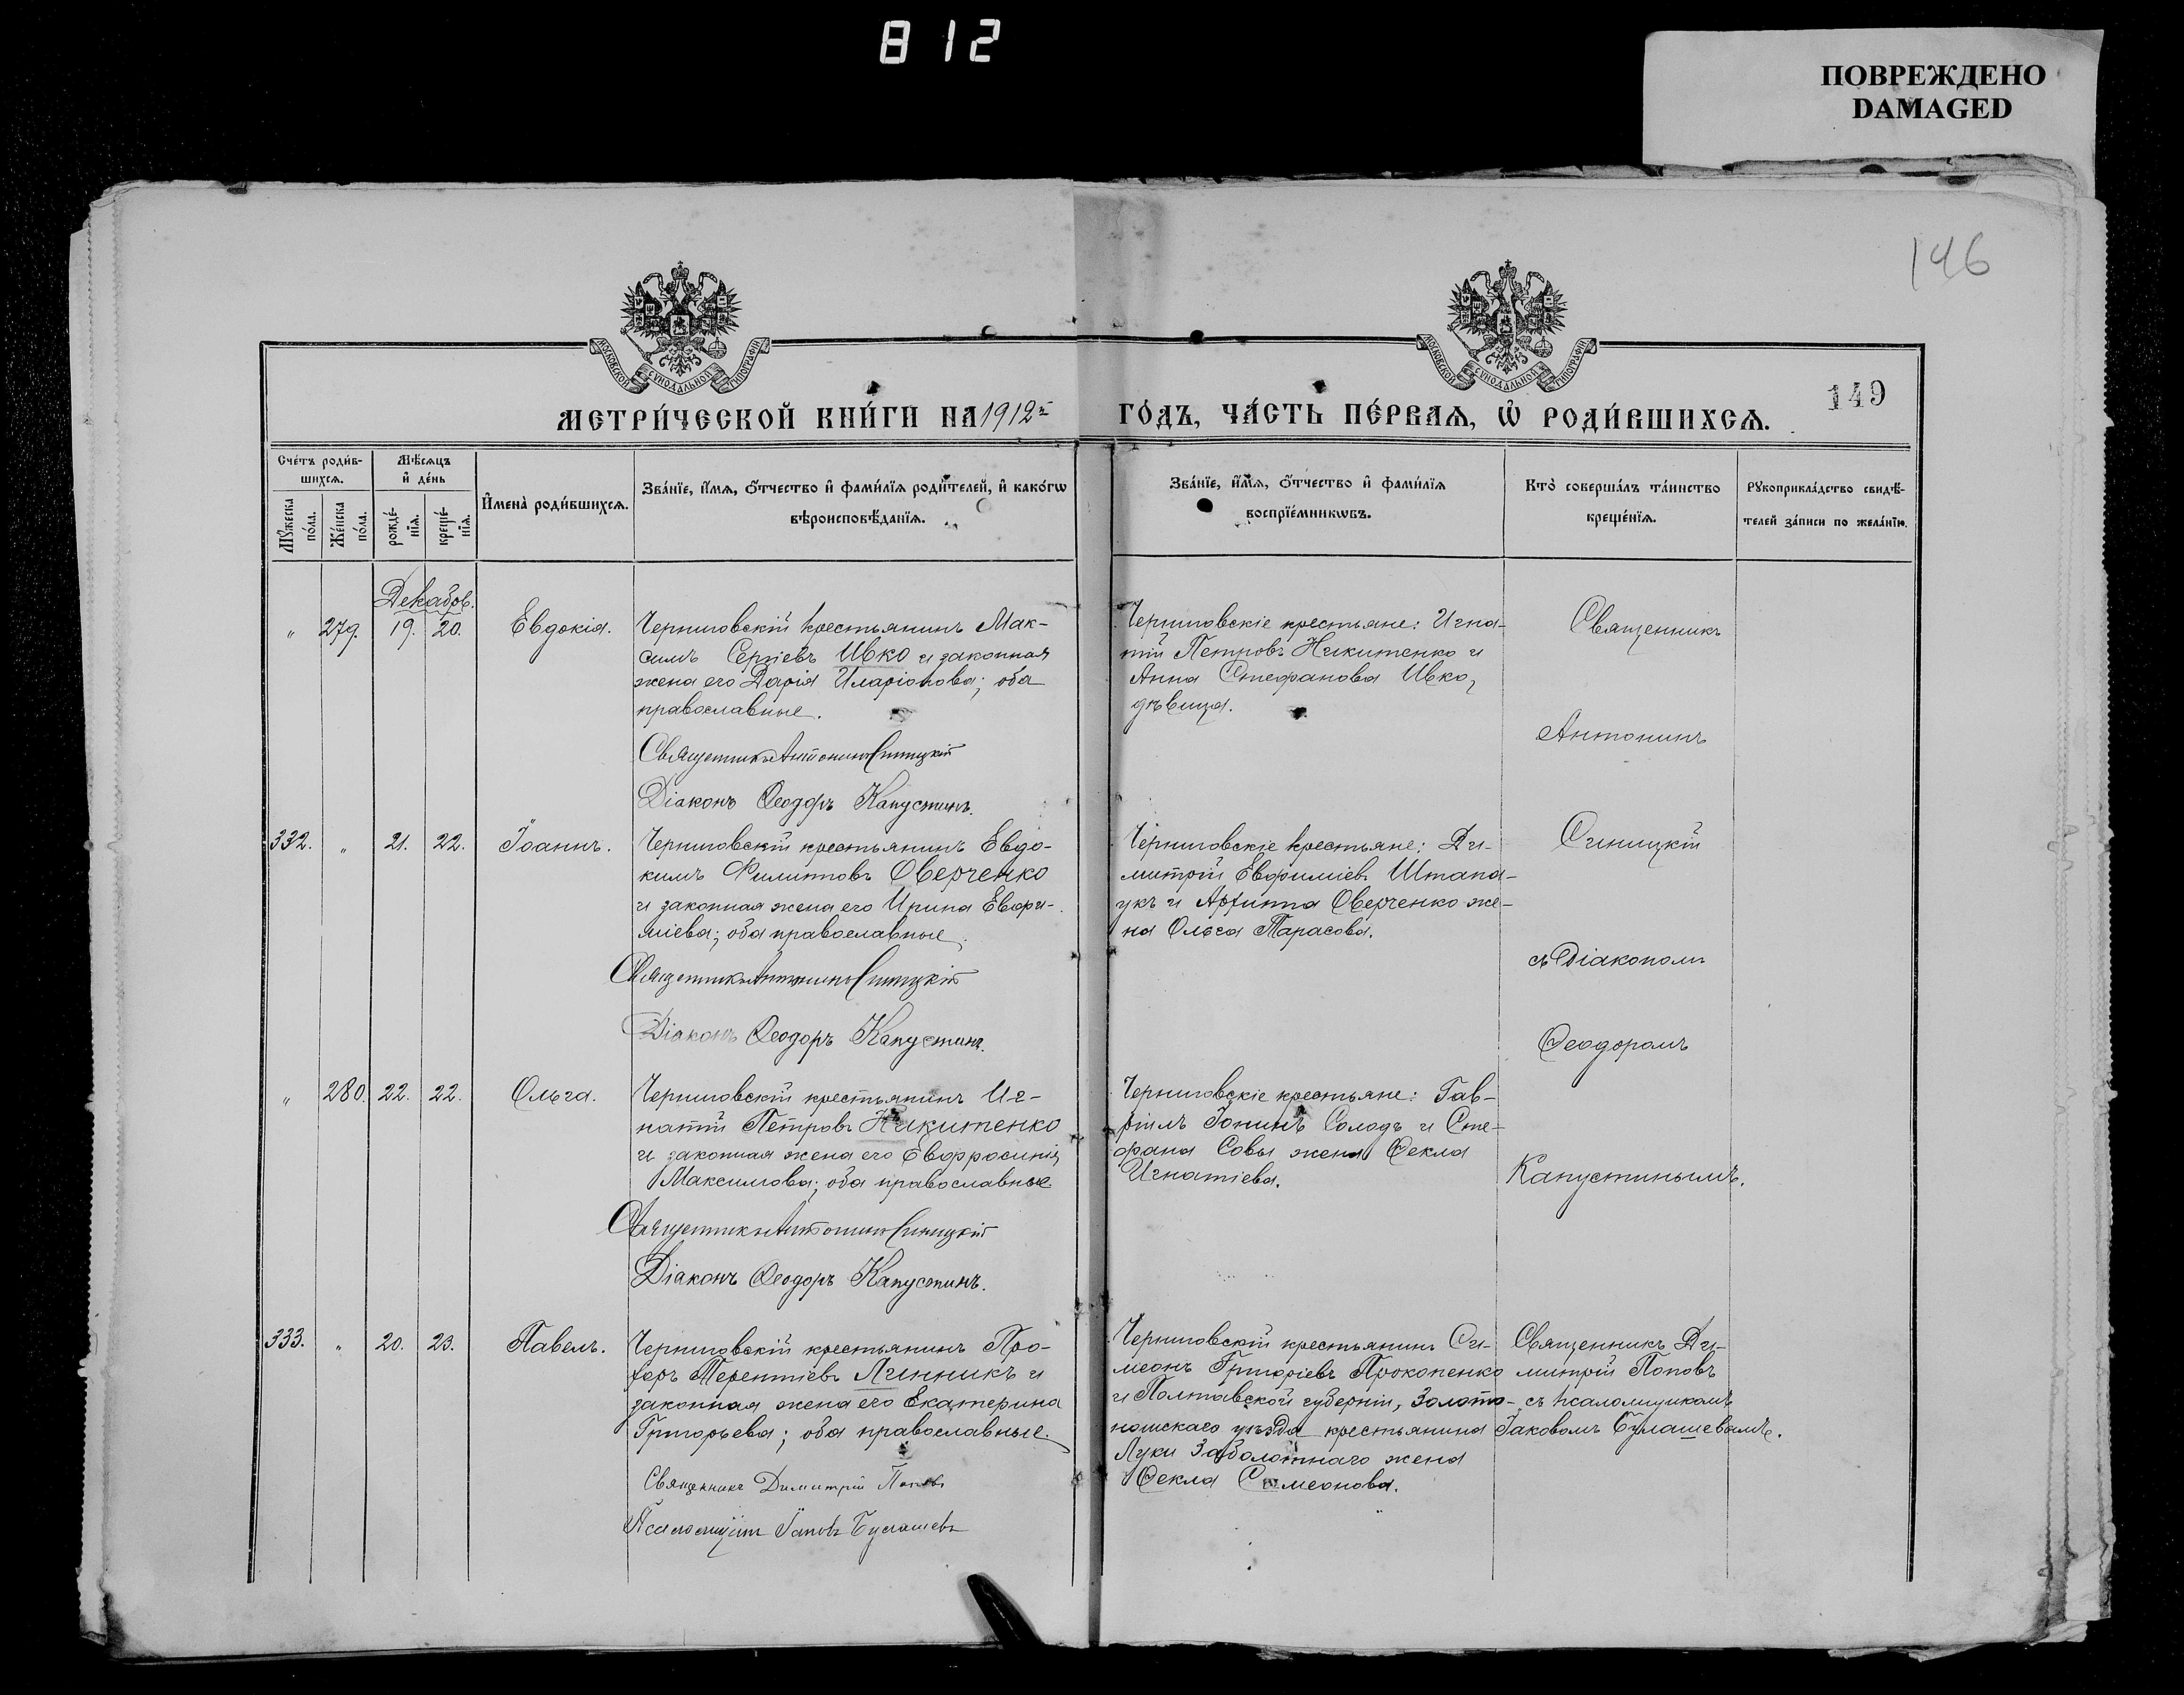 812
ПОВРЕЖДЕНО
DAMAGED
146
МОСКОВСКОЙ СѴНОДАЛЬНОЙ ТИПОГРАФІИ
МОСКОВСКОЙ СѴНОДАЛЬНОЙ ТИПОГРАФІИ
149
МЕТРИ́ЧЕСКОЙ КНИ́ГИ НА 1912й ГО́ДЪ, ЧА́СТЬ ПЕ́РВАЯ, Ѡ҆ РОДИ́ВШИХСЯ.
Сче́тъ роди́в-
шихся.
Мѣ́сяцъ
и҆ де́нь
Мꙋ́жеска по́ла.
Же́нска по́ла.
рожде́-
нїя.
креще́-
нїя.
И҆мена̀ роди́вшихся.
Зва́нїе, и҆́мя, ѻ҆́тчество и҆ фами́лїя роди́телей, и҆ како́гѡ
вѣроисповѣ́данїя.
Зва́нїе, и҆́мя, ѻ҆́тчество и҆ фами́лїя
воспрїе́мникѡвъ.
Кто̀ соверша́лъ та́инство
креще́нїя.
Рꙋкоприкла́дство свидѣ́-
телей за́писи по жела́нїю.
Декабрь.
" 279. 19. 20. Евдокія.
Черниговскій крестьянинъ Мак-
симъ Сергіевъ Ивко и законная
жена его Дарія Иларіонова; оба
православные.
Священникъ Антонинъ Синицкій
Діаконъ Ѳеодоръ Капустинъ.
Черниговскіе крестьяне: Игна-
тій Петровъ Никитенко и
Анна Стефанова Ивко,
дѣвица.
Священникъ
Антонинъ
Синицкій
съ Діакономъ
Ѳеодоромъ
Капустинымъ.
332. " 21. 22. Іоаннъ.
Черниговскій крестьянинъ Евдо-
кимъ Филипповъ Оверченко
и законная жена его Ирина Евфи-
міева; оба православные.
Священникъ Антонинъ Синицкій
Діаконъ Ѳеодоръ Капустинъ.
Черниговскіе крестьяне: Ди-
митрій Евфиміевъ Штапа-
укъ и Архиппа Оверченко же-
на Ольга Тарасова.
" 280. 22. 22. Ольга.
Черниговскій крестьянинъ Иг-
натій Петровъ Никитенко
и законная жена его Евфросинія
Максимова; оба православные
Священникъ Антонинъ Синицкій
Діаконъ Ѳеодоръ Капустинъ.
Черниговскіе крестьяне: Гав-
ріилъ Іонинъ Солодъ и Сте-
фана Совы жена Ѳекла
Игнатіева.
333. " 20. 23. Павелъ.
Черниговскій крестьянинъ Про-
хоръ Терентіевъ Линникъ и
законная жена его Екатерина
Григорьева; оба православные.
Священникъ Димитрій Поповъ
Псаломщикъ Іаковъ Булашевъ
Черниговскій крестьянинъ Си-
меонъ Григоріевъ Прокопенко
и Полтавской губерніи, Золото-
ношскаго уѣзда крестьянина
Луки Заболотнаго жена
Ѳекла Симеонова.
Священникъ Ди-
митрій Поповъ
съ псаломщикомъ
Іаковомъ Булашевымъ.